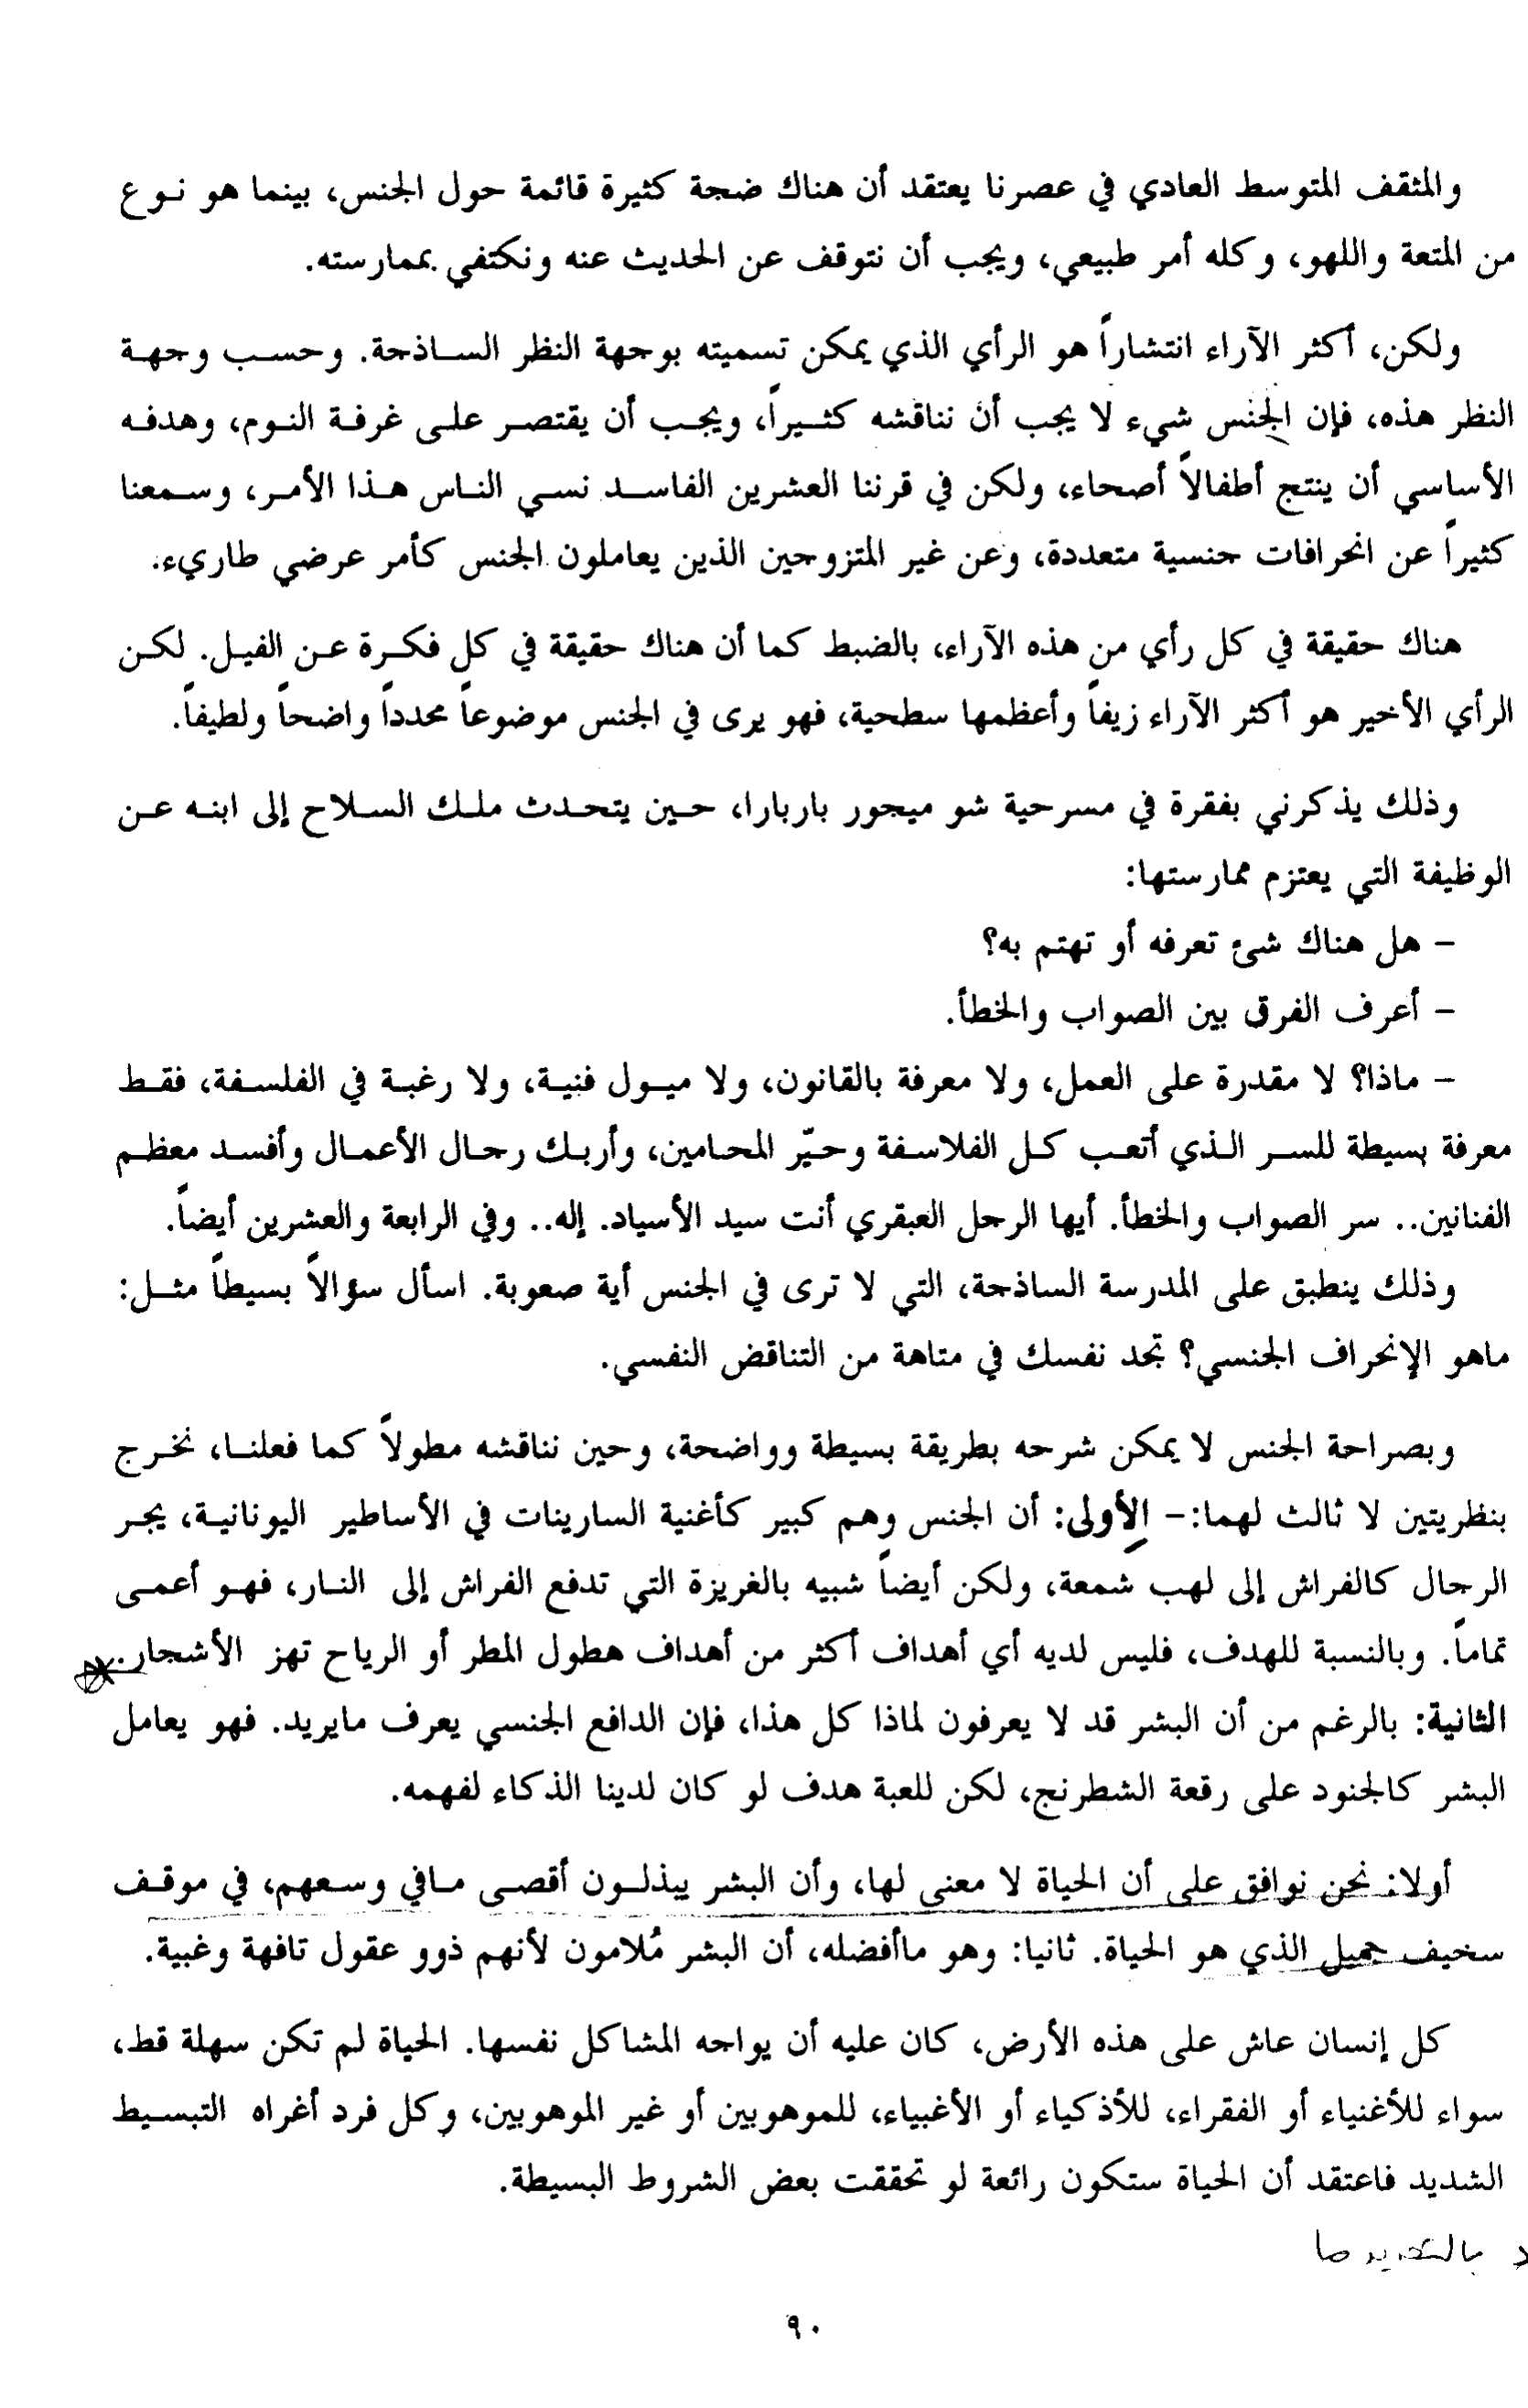 والمثقف المتوسط العادي في عصرنا يعتقد أن هناك ضجة كثيرة قائمة حول الجنس، بينما هو نوع
من المتعة واللهو، وكله أمر طبيعي، ويجب أن نتوقف عن الحديث عنه ونكتفي بممارسته.
ولكن، أكثر الآراء انتشاراً هو الرأي الذي يمكن تسميته بوجهة النظر الساذجة. وحسب وجهة
النظر هذه، فإن الجنس شيء لا يجب أن نناقشه كثيراً، ويجب أن يقتصر على غرفة النوم، وهدفه
الأساسي أن ينتج أطفالاً أصحاء، ولكن في قرننا العشرين الفاسد نسي الناس هذا الأمر، وسمعنا
كثيراً عن انحرافات جنسية متعددة، وعن غير المتزوجين الذين يعاملون الجنس كأمر عرضي طاريء.
هناك حقيقة في كل رأي من هذه الآراء، بالضبط كما أن هناك حقيقة في كل فكرة عن الفيل. لكن
الرأي الأخير هو أكثر الآراء زيفاً وأعظمها سطحية، فهو يرى في الجنس موضوعاً محدداً واضحاً ولطيفاً.
وذلك يذكرني بفقرة في مسرحية شو ميجور باربارا، حين يتحدث ملك السلاح إلى ابنه عن
الوظيفة التي يعتزم ممارستها:
– هل هناك شئ تعرفه أو تهتم به؟
– أعرف الفرق بين الصواب والخطأ.
– ماذا؟ لا مقدرة على العمل، ولا معرفة بالقانون، ولا ميول فنية، ولا رغبة في الفلسفة، فقط
معرفة بسيطة للسر الذي أتعب كل الفلاسفة وحيّر المحامين، وأربك رجال الأعمال وأفسد معظم
الفنانين.. سر الصواب والخطأ. أيها الرجل العبقري أنت سيد الأسياد. إله.. وفي الرابعة والعشرين أيضاً.
وذلك ينطبق على المدرسة الساذجة، التي لا ترى في الجنس أية صعوبة. اسأل سؤالاً بسيطاً مثل:
ماهو الإنحراف الجنسي؟ تجد نفسك في متاهة من التناقض النفسي.
وبصراحة الجنس لا يمكن شرحه بطريقة بسيطة وواضحة، وحين نناقشه مطولاً كما فعلنا، نخرج
بنظريتين لا ثالث لهما:– الأولى: أن الجنس وهم كبير كأغنية السارينات في الأساطير اليونانية، يجر
الرجال كالفراش إلى لهب شمعة، ولكن أيضاً شبيه بالغريزة التي تدفع الفراش إلى النار، فهو أعمى
تماماً. وبالنسبة للهدف، فليس لديه أي أهداف أكثر من أهداف هطول المطر أو الرياح تهز الأشجار.
الثانية: بالرغم من أن البشر قد لا يعرفون لماذا كل هذا، فإن الدافع الجنسي يعرف مايريد. فهو يعامل
البشر كالجنود على رقعة الشطرنج، لكن للعبة هدف لو كان لدينا الذكاء لفهمه.
أولا: نحن نوافق على أن الحياة لا معنى لها، وأن البشر يبذلون أقصى مافي وسعهم، في موقف
سخيف جميل الذي هو الحياة. ثانيا: وهو ماأفضله، أن البشر مُلامون لأنهم ذوو عقول تافهة وغبية.
كل إنسان عاش على هذه الأرض، كان عليه أن يواجه المشاكل نفسها. الحياة لم تكن سهلة قط،
سواء للأغنياء أو الفقراء، للأذكياء أو الأغبياء، للموهوبين أو غير الموهوبين، وكل فرد أغراه التبسيط
الشديد فاعتقد أن الحياة ستكون رائعة لو تحققت بعض الشروط البسيطة.
٩٠